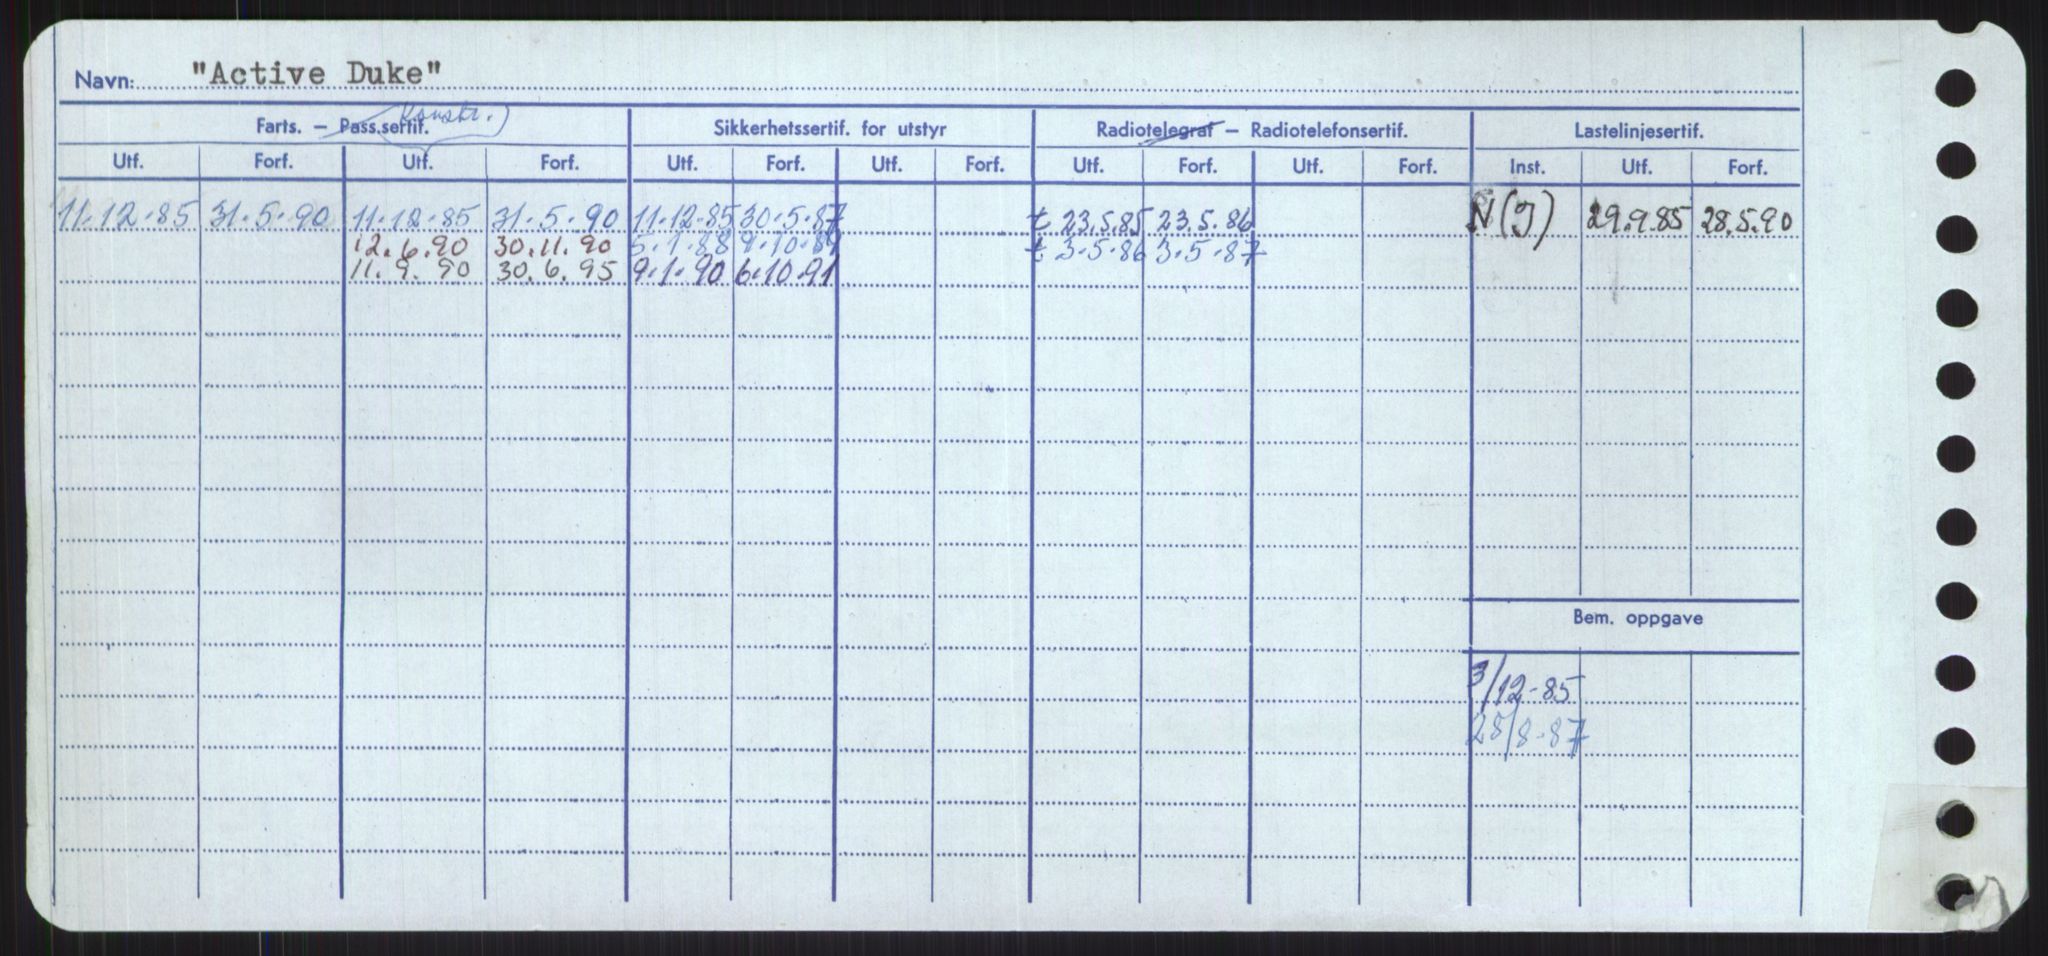 Navn: "Active Duke"
Konstr.
Farts. — Pass.sertif. Sikkerhetssertif. for utstyr Radiotelegraf — Radiotelefonsertif. Lastelinjesertif.
Utf. Forf. Utf. Forf. Utf. Forf. Utf. Forf. Utf. Forf. Utf. Forf. Inst. Utf. Forf.
11.12.85 31.5.90 11.12.85 31.5.90 11.12.85 30.5.87 t 23.5.85 23.5.86 N(J) 29.9.85 28.5.90
12.6.90 30.11.90 5.1.88 9.10.89 t 3.5.86 3.5.87
11.9.90 30.6.95 9.1.90 6.10.91
Bem. oppgave
3/12-85
28/8-87